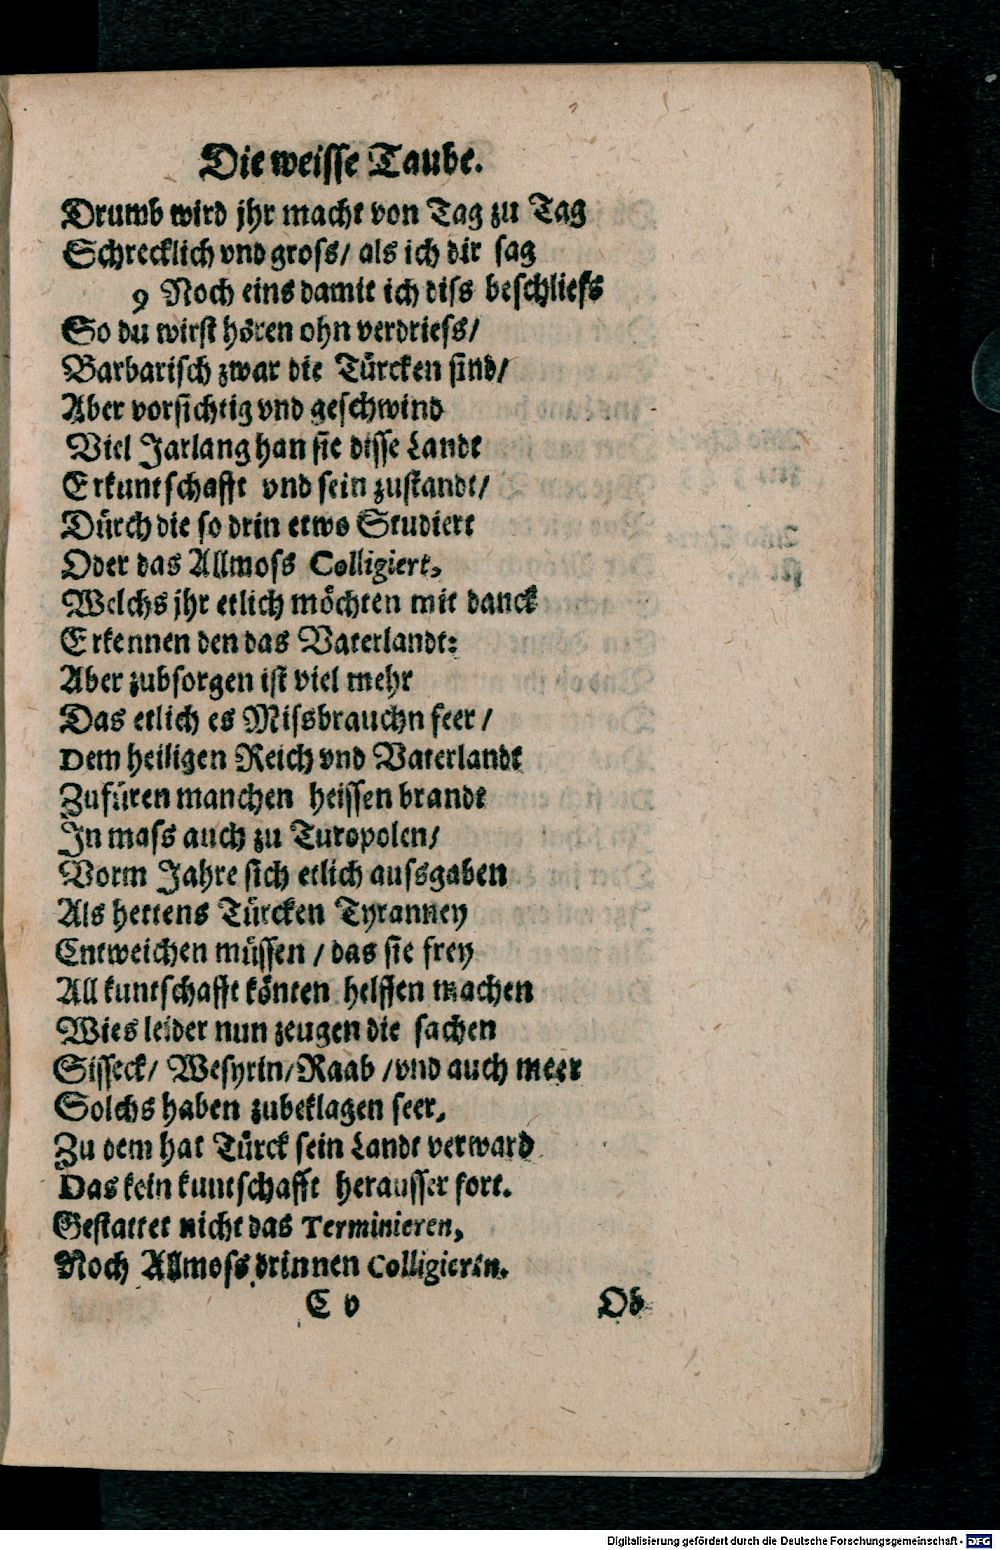 Die weisse Taube.
Drumb wird jhr macht von Tag zu Tag
Schrecklich vnd gross/ als ich dir sag
9 Noch eins damit ich diss beschliess
So du wirst hören ohn verdriess/
Barbarisch zwar die Türcken sind/
Aber vorsichtig vnd geschwind
Viel Jarlang han sie disse Landt
Erkuntschafft vnd sein zustandt/
Dürch die so drin etwo Studiert
Oder das Allmoss Colligiert,
Welchs jhr etlich möchten mit danck
Erkennen den das Vaterlandt:
Aber zubsorgen ist viel mehr
Das etlich es Missbrauchn seer/
Dem heiligen Reich vnd Vaterlandt
Zufüren manchen heissen brandt
In mass auch zu Turopolen/
Vorm Jahre sich etlich aussgaben
Als hettens Türcken Tyranney
Entweichen müssen/ das sie frey
All kuntschafft könten helffen machen
Wies leider nun zeugen die sachen
Sisseck/ Wesyrin/ Raab/ vnd auch meer
Solchs haben zubeklagen seer,
Zu dem hat Türck sein Landt verward
Das kein kuntschafft herausser fort.
Gestattet nicht das Terminieren,
Noch Allmoss drinnen Colligieren.
C v Ob
Digitalisierung gefördert durch die Deutsche Forschungsgemeinschaft - DFG